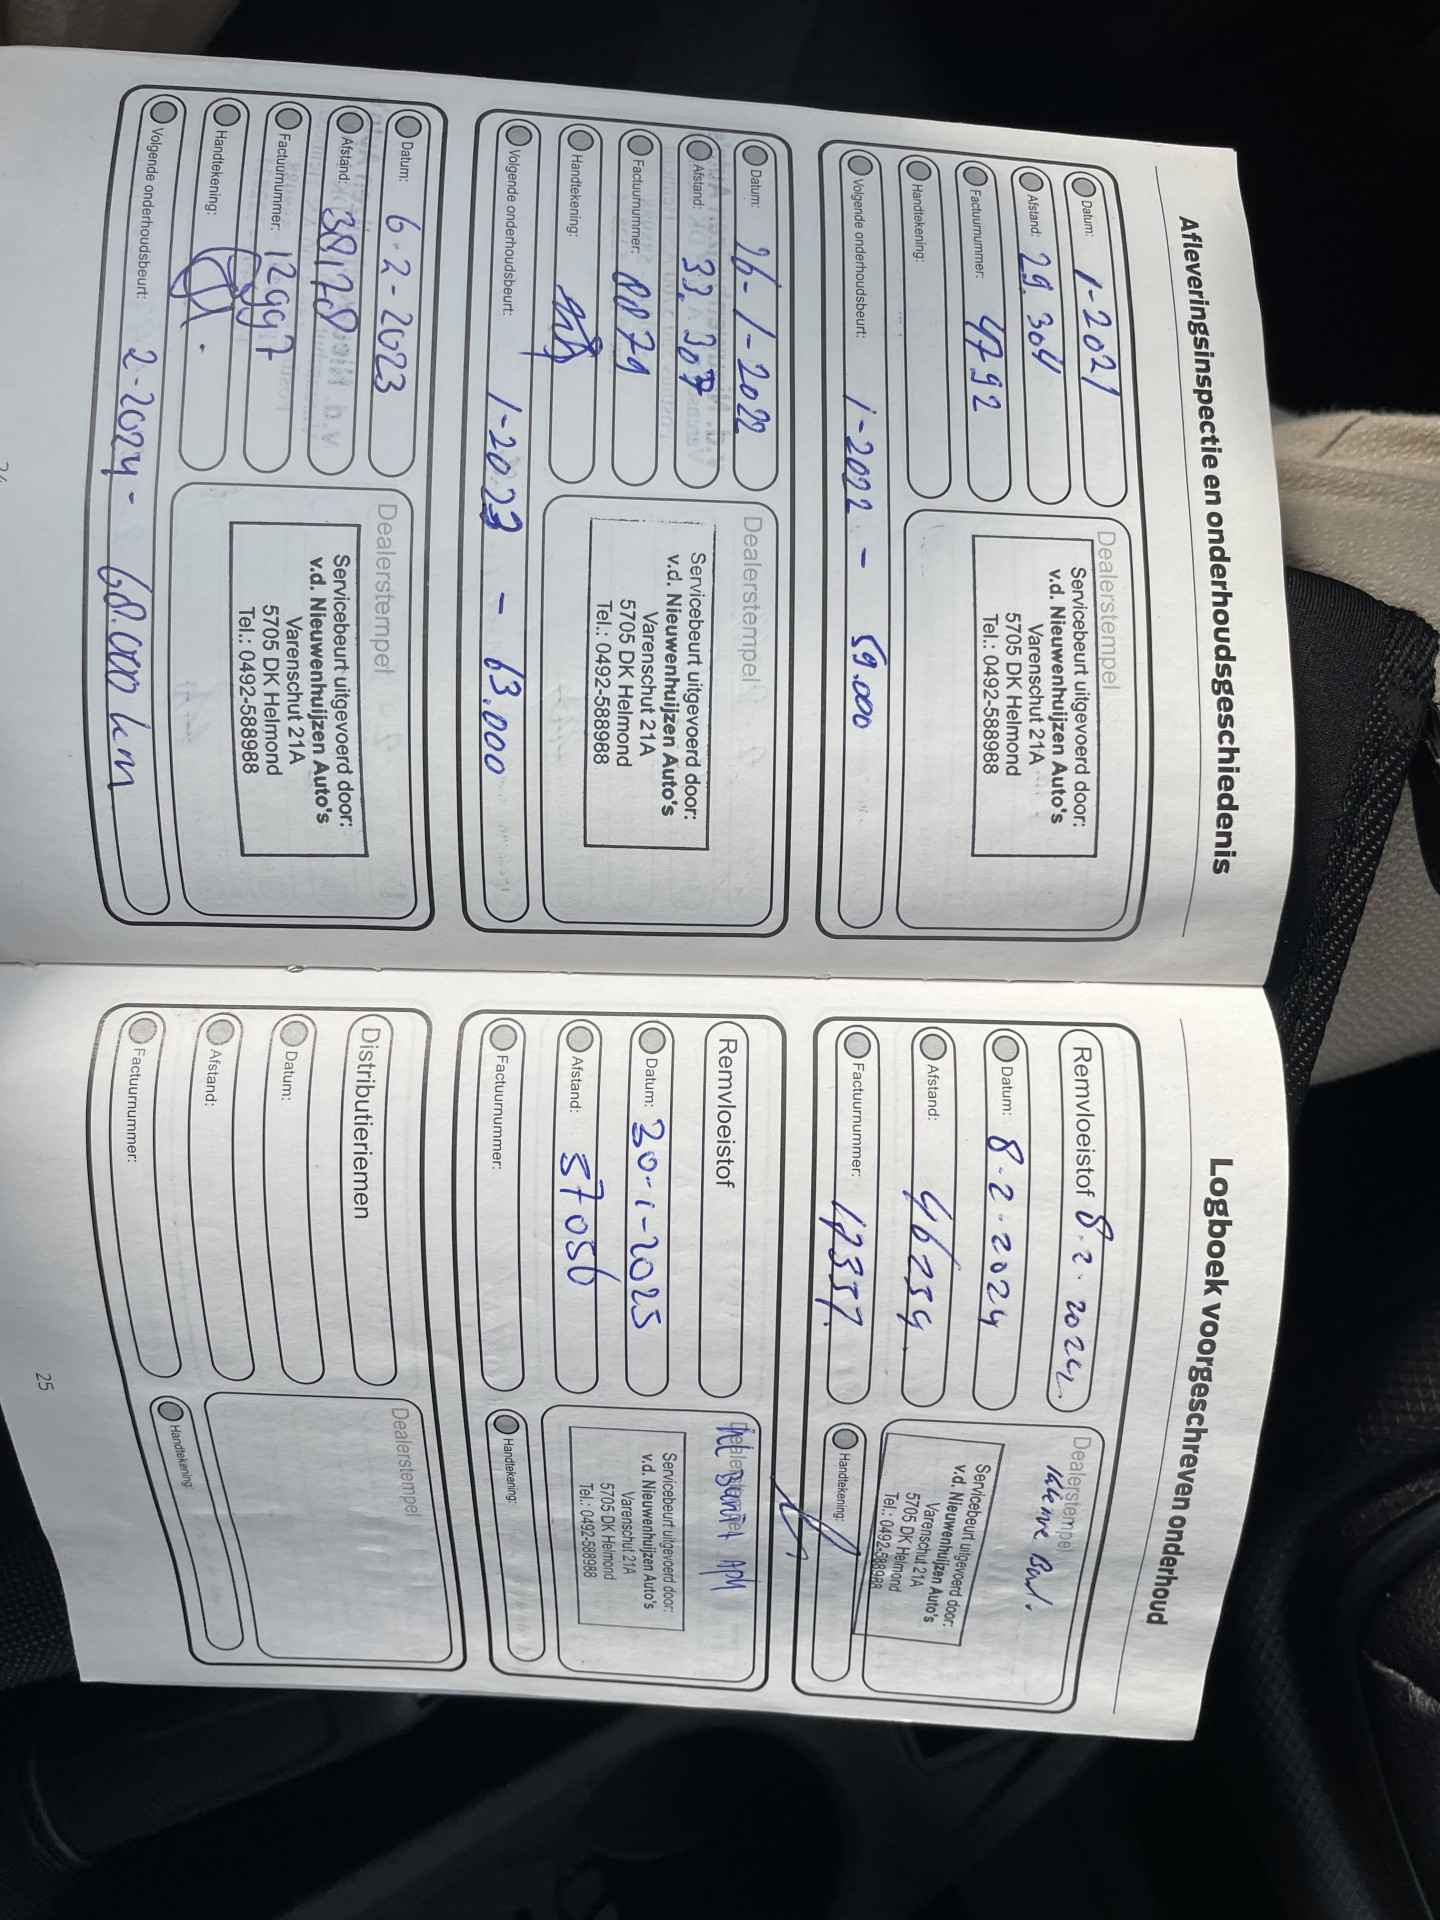 Afleveringsinspectie en onderhoudsgeschiedenis
Datum: 1-2021
Afstand: 29.304
Factuurnummer: 4792
Handtekening:
Volgende onderhoudsbeurt: 1-2022 - 59.000
Dealerstempel
Servicebeurt uitgevoerd door:
v.d. Nieuwenhuijzen Auto's
Varenschut 21A
5705 DK Helmond
Tel.: 0492-588988
Datum: 26-1-2022
Afstand: 33.307
Factuurnummer: 8879
Handtekening:
Volgende onderhoudsbeurt: 1-2023 - 63.000
Dealerstempel
Servicebeurt uitgevoerd door:
v.d. Nieuwenhuijzen Auto's
Varenschut 21A
5705 DK Helmond
Tel.: 0492-588988
Datum: 6-2-2023
Afstand: 38178
Factuurnummer: 12997
Handtekening:
Volgende onderhoudsbeurt: 2-2024- 68.000 km
Dealerstempel
Servicebeurt uitgevoerd door:
v.d. Nieuwenhuijzen Auto's
Varenschut 21A
5705 DK Helmond
Tel.: 0492-588988
Logboek voorgeschreven onderhoud
Remvloeistof 8.2.2024
Datum: 8.2.2024
Afstand: 46239
Factuurnummer: 17337
Dealerstempel
Kleine
Servicebeurt uitgevoerd door:
v.d. Nieuwenhuijzen Auto's
Varenschut 21A
5705 DK Helmond
Tel.: 0492-588988
Handtekening:
Remvloeistof
Datum: 30-1-2025
Afstand: 57056
Factuurnummer:
Dealerstempel
APK
Servicebeurt uitgevoerd door:
v.d. Nieuwenhuijzen Auto's
Varenschut 21A
5705 DK Helmond
Tel.: 0492-588988
Handtekening:
Distributieriemen
Datum:
Afstand:
Factuurnummer:
Dealerstempel
Handtekening:
25